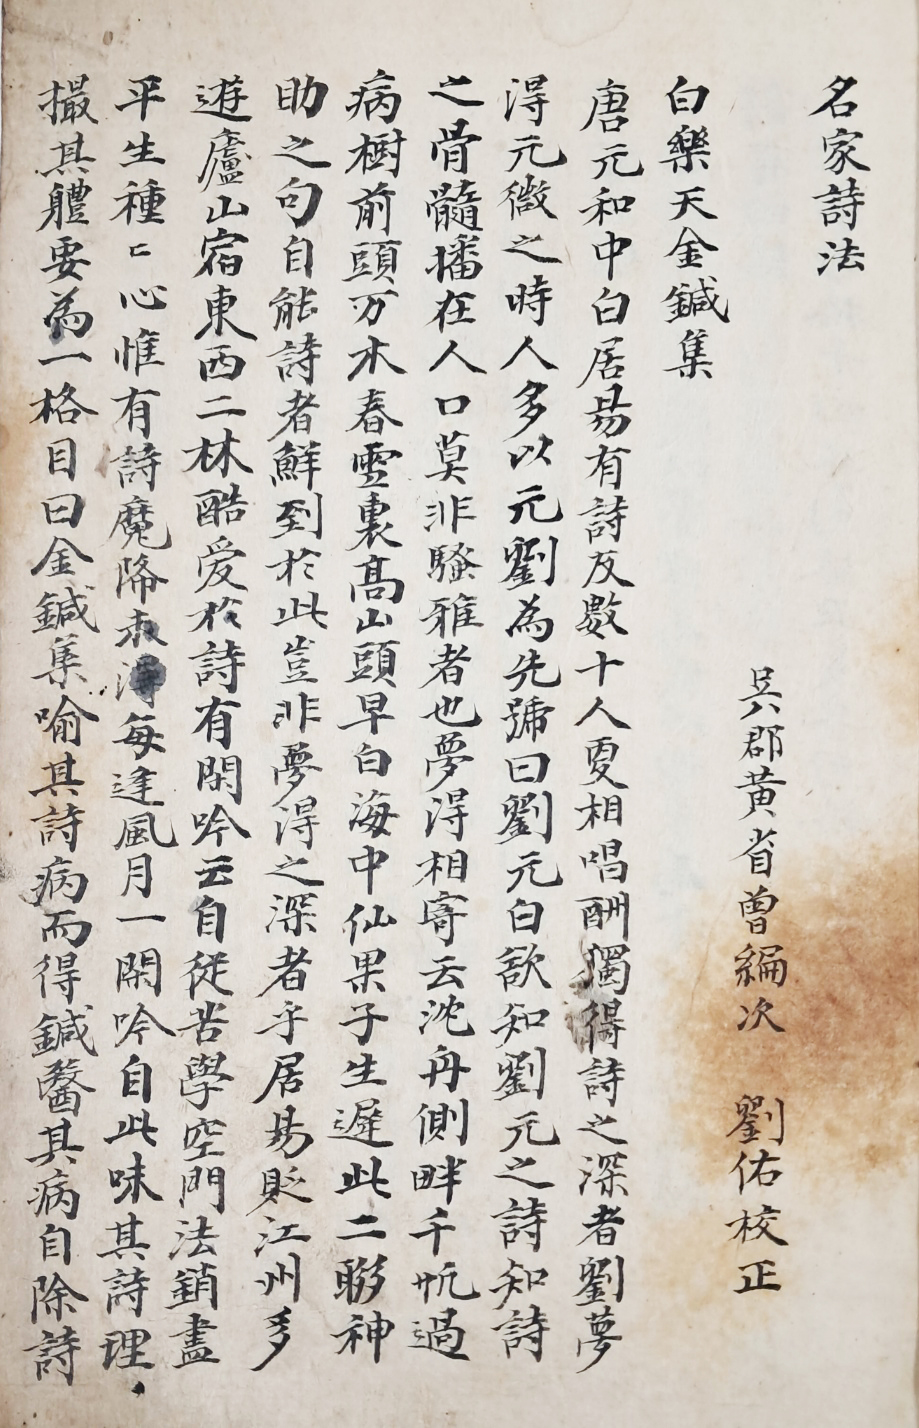 名家詩法
吳郡黃省曾編次 劉佑校正
白樂天金鍼集
唐元和中白居易有詩友數十人更相唱酬獨得詩之深者劉夢
得元微之時人多以元劉為先號曰劉元白欲知劉元之詩知詩
之骨髓播在人口莫非騷雅者也夢得相寄云沈舟側畔千帆過
病樹前頭万木春雪裏高山頭早白海中仙果子生遲此二聯神
助之句自能詩者鮮到於此豈非夢得之深者乎居易貶江州多
遊廬山宿東西二林酷愛於詩有閑吟云自從苦學空門法銷盡
平生種〻心惟有詩魔降未得每逢風月一閑吟自此味其詩理
撮其體要為一格目曰金鍼集喻其詩病而得鍼醫其病自除詩